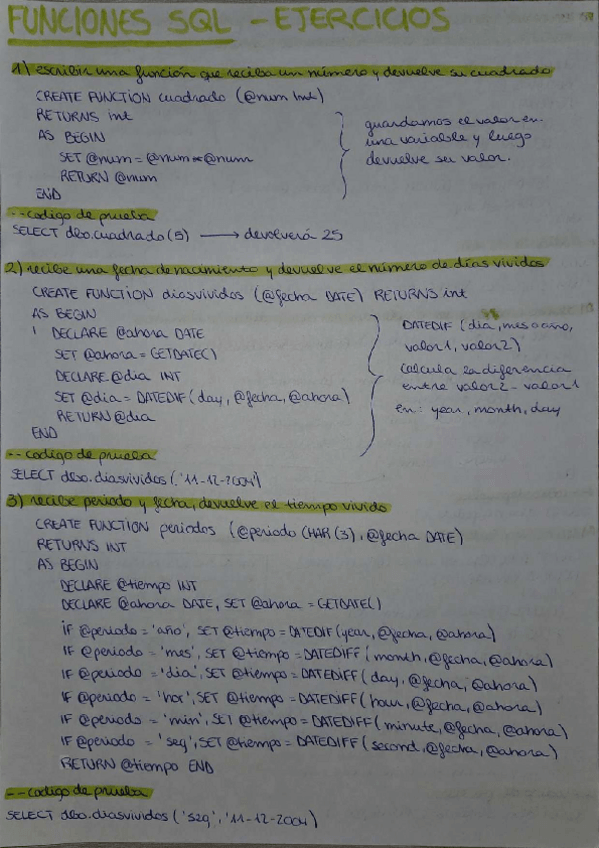 FUNCIONES SQL - EJERCICIOS
1) escribir una función que reciba un número y devuelve su cuadrado
CREATE FUNCTION cuadrado (@num Int)
RETURNS int
AS BEGIN
SET @num = @num * @num
RETURN @num
END
guardamos el valor en
una variable y luego
devuelve su valor.
--codigo de prueba
SELECT dbo.cuadrado(5) → devolverá 25
2) recibe una fecha de nacimiento y devuelve el número de días vividos
CREATE FUNCTION diasvividos (@fecha DATE) RETURNS int
AS BEGIN
DECLARE @ahora DATE
SET @ahora = GETDATE()
DECLARE @dia INT
SET @dia = DATEDIF(day, @fecha, @ahora)
RETURN @dia
END
DATEDIF (dia, mes o año,
valor1, valor2)
calcula la diferencia
entre valor2 - valor1
en: year, month, day
--codigo de prueba
SELECT dbo.diasvividos ('11-12-2004')
3) recibe periodo y fecha, devuelve el tiempo vivido
CREATE FUNCTION periodos (@periodo CHAR(3), @fecha DATE)
RETURNS INT
AS BEGIN
DECLARE @tiempo INT
DECLARE @ahora DATE, SET @ahora = GETDATE()
IF @periodo = 'año', SET @tiempo = DATEDIF(year, @fecha, @ahora)
IF @periodo = 'mes', SET @tiempo = DATEDIFF(month, @fecha, @ahora)
IF @periodo = 'dia', SET @tiempo = DATEDIFF(day, @fecha, @ahora)
IF @periodo = 'hor', SET @tiempo = DATEDIFF(hour, @fecha, @ahora)
IF @periodo = 'min', SET @tiempo = DATEDIFF(minute, @fecha, @ahora)
IF @periodo = 'seg', SET @tiempo = DATEDIFF(second, @fecha, @ahora)
RETURN @tiempo END
--codigo de prueba
SELECT dbo.diasvividos ('seg', '11-12-2004')